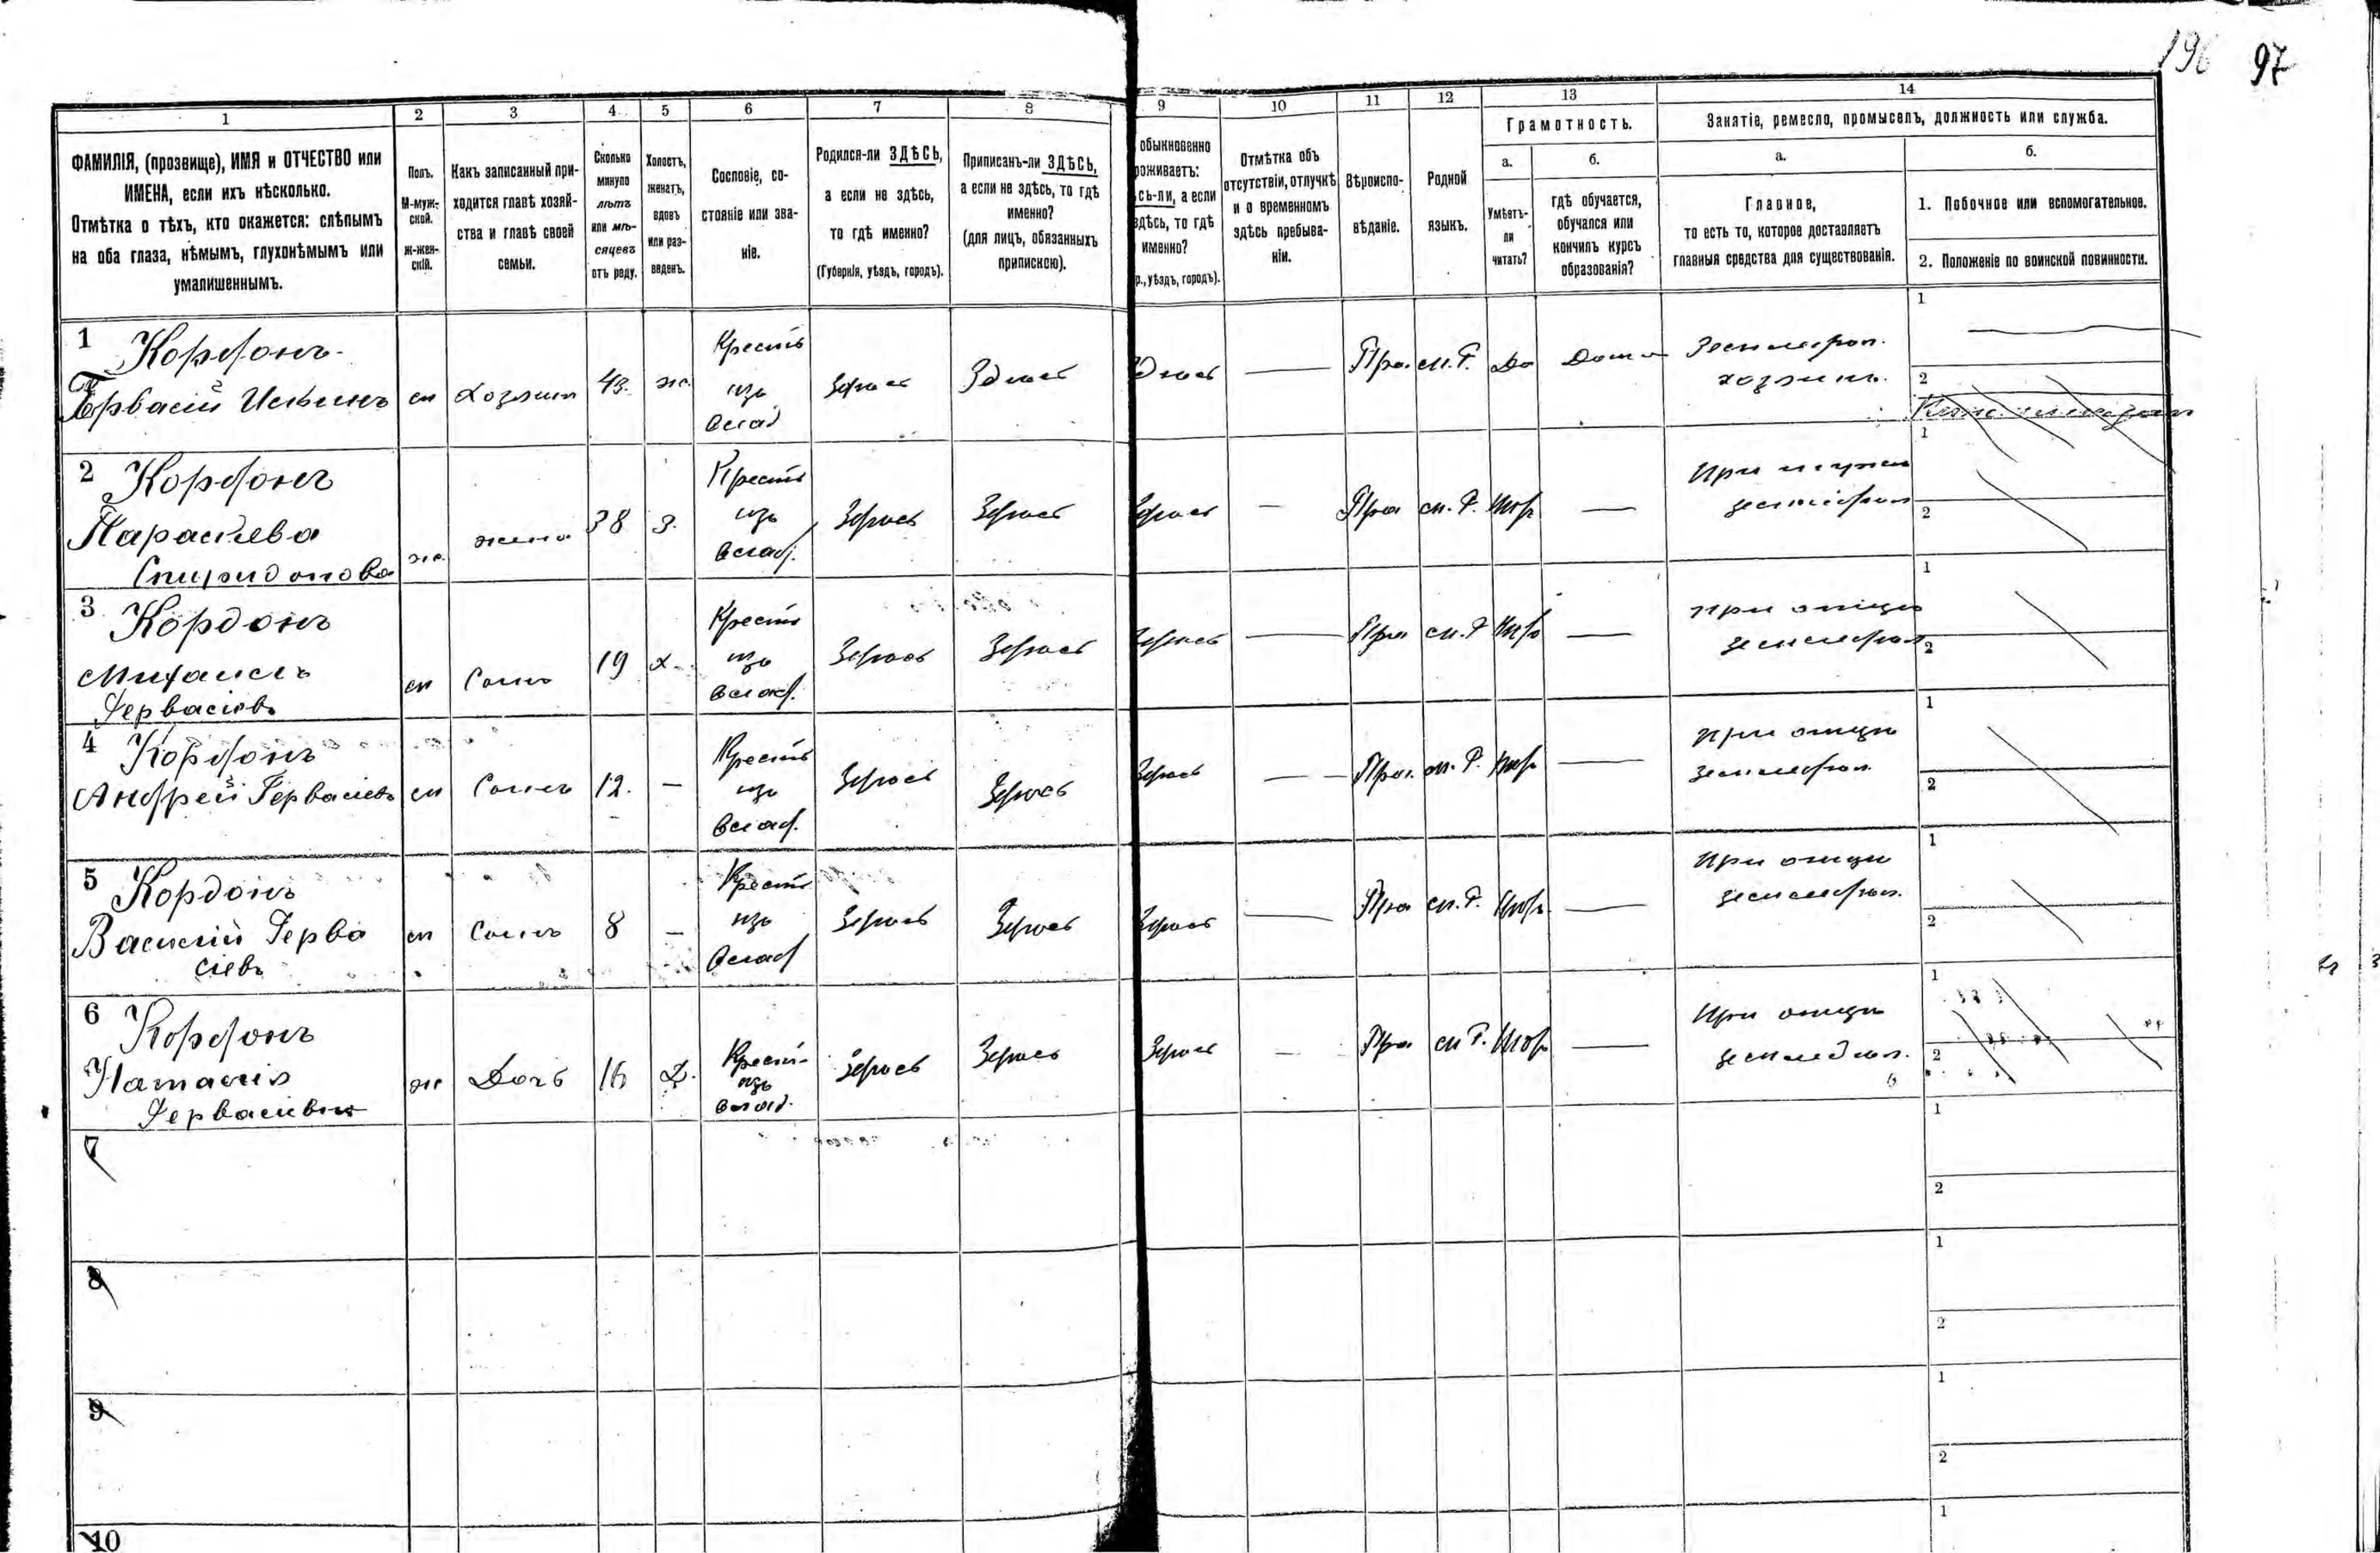 196 97
1
2
3
4
5
6
7
8
9
10
11
12
13
14
ФАМИЛІЯ, (прозвище), ИМЯ и ОТЧЕСТВО или
ИМЕНА, если ихъ нѣсколько.
Отмѣтка о тѣхъ, кто окажется: слѣпымъ
на оба глаза, нѣмымъ, глухонѣмымъ или
умалишеннымъ.
Полъ.
М-муж-
ской.
Ж-жен-
скій.
Какъ записанный при-
ходится главѣ хозяй-
ства и главѣ своей
семьи.
Сколько
минуло
лѣтъ
или мѣ-
сяцевъ
отъ роду.
Холостъ,
женатъ,
вдовъ
или раз-
веденъ.
Сословіе, со-
стояніе или зва-
ніе.
Родился-ли ЗДѢСЬ,
а если не здѣсь,
то гдѣ именно?
(Губернія, уѣздъ, городъ).
Приписанъ-ли ЗДѢСЬ,
а если не здѣсь, то гдѣ
именно?
(для лицъ, обязанныхъ
припискою).
обыкновенно
роживаетъ:
сь-ли, а если
здѣсь, то гдѣ
именно?
р., уѣздъ, городъ).
Отмѣтка объ
отсутствіи, отлучкѣ
и о временномъ
здѣсь пребыва-
ніи.
Вѣроиспо-
вѣданіе.
Родной
языкъ.
Грамотность.
а.
Умѣетъ-
ли
читать?
б.
гдѣ обучается,
обучался или
кончилъ курсъ
образованія?
Занятіе, ремесло, промыселъ, должность или служба.
а.
Главное,
то есть то, которое доставляетъ
главныя средства для существованія.
б.
1. Побочное или вспомогательное.
2. Положеніе по воинской повинности.
1 Кордонъ
Гервасій
м Хозяин 43. ж.
Крестъ
изъ
влад
Здесь Здесь Здесь — Пра. м. Р. Да Дома
Землероп.
хозяинъ.
1
2
2 Кордонъ
Параскева
Спиридонова
ж. жена 38 з.
Крестъ
изъ
влад.
Здесь Здесь Здесь — Пра м. Р. Нор —
При мужи
землероп
1
2
3 Кордонъ
Михаилъ
Гервасіевъ
м Сынъ 19 х.
Крестъ
изъ
влад.
Здесь Здесь Здесь — Пра м. Р Нор —
при отцы
землероп
1
2
4 Кордонъ
Андрей Гервасіевъ
м Сынъ 12. —
Крестъ
изъ
влад.
Здесь Здесь Здесь — Пра. м. Р. Нор —
при отцы
землероп.
1
2
5 Кордонъ
Василій Герва
сіевъ
м Сынъ 8 —
Крестъ
изъ
влад
Здесь Здесь Здесь — Пра м. Р. Нор. —
при отцы
землероп.
1
2
6 Кордонъ
Наталія
Гервасивна
ж Дочь 16 Д.
Крест-
изъ
влад.
Здесь Здесь Здесь — Пра м Р. Нор —
При отцы
землероп.
1
2
7
1
2
8
1
2
9
1
2
10
1